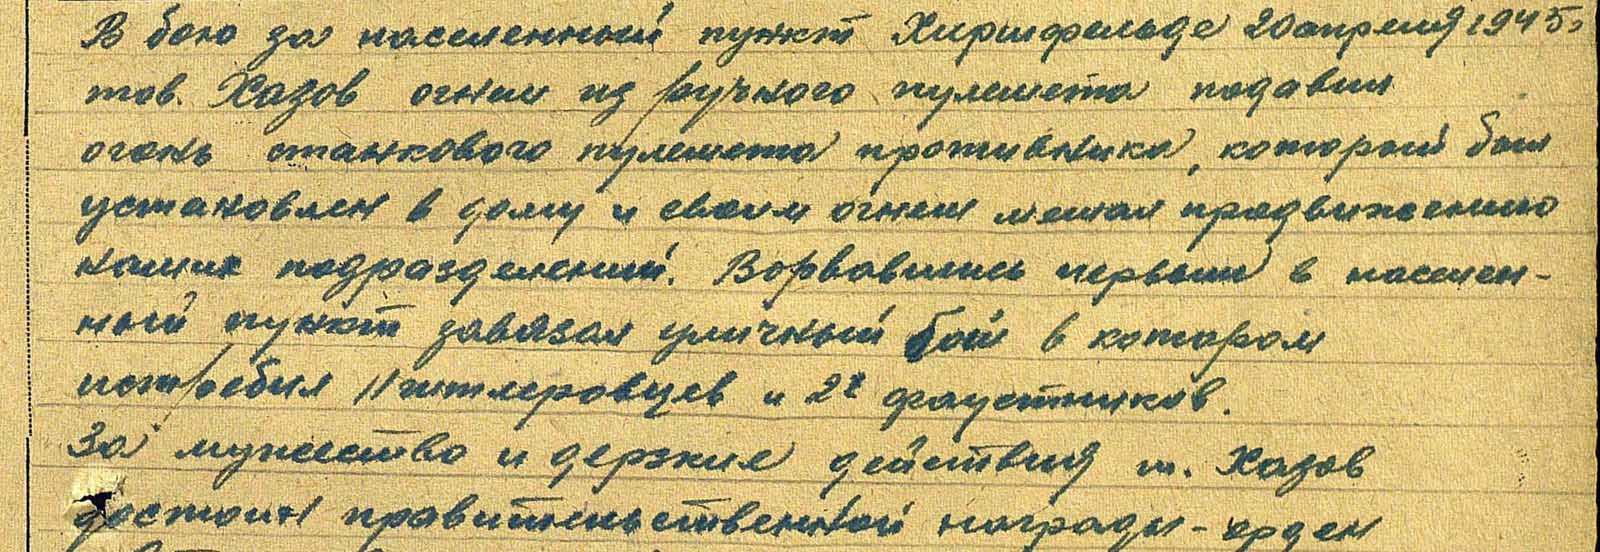 В бою за населенный пункт Хиршфельде 20 апреля 1945г
тов. Хазов огнем из ручного пулемета подавил
огонь станкового пулемета противника, который был
установлен в дому и своим огнем мешал продвижению
наших подразделений. Ворвавшись первым в населен-
ный пункт завязал уличный бой в котором
истребил 11 гитлеровцев и 2х фаустников.
За мужество и дерзкие действия т. Хазов
достоин правительственной награды - орден